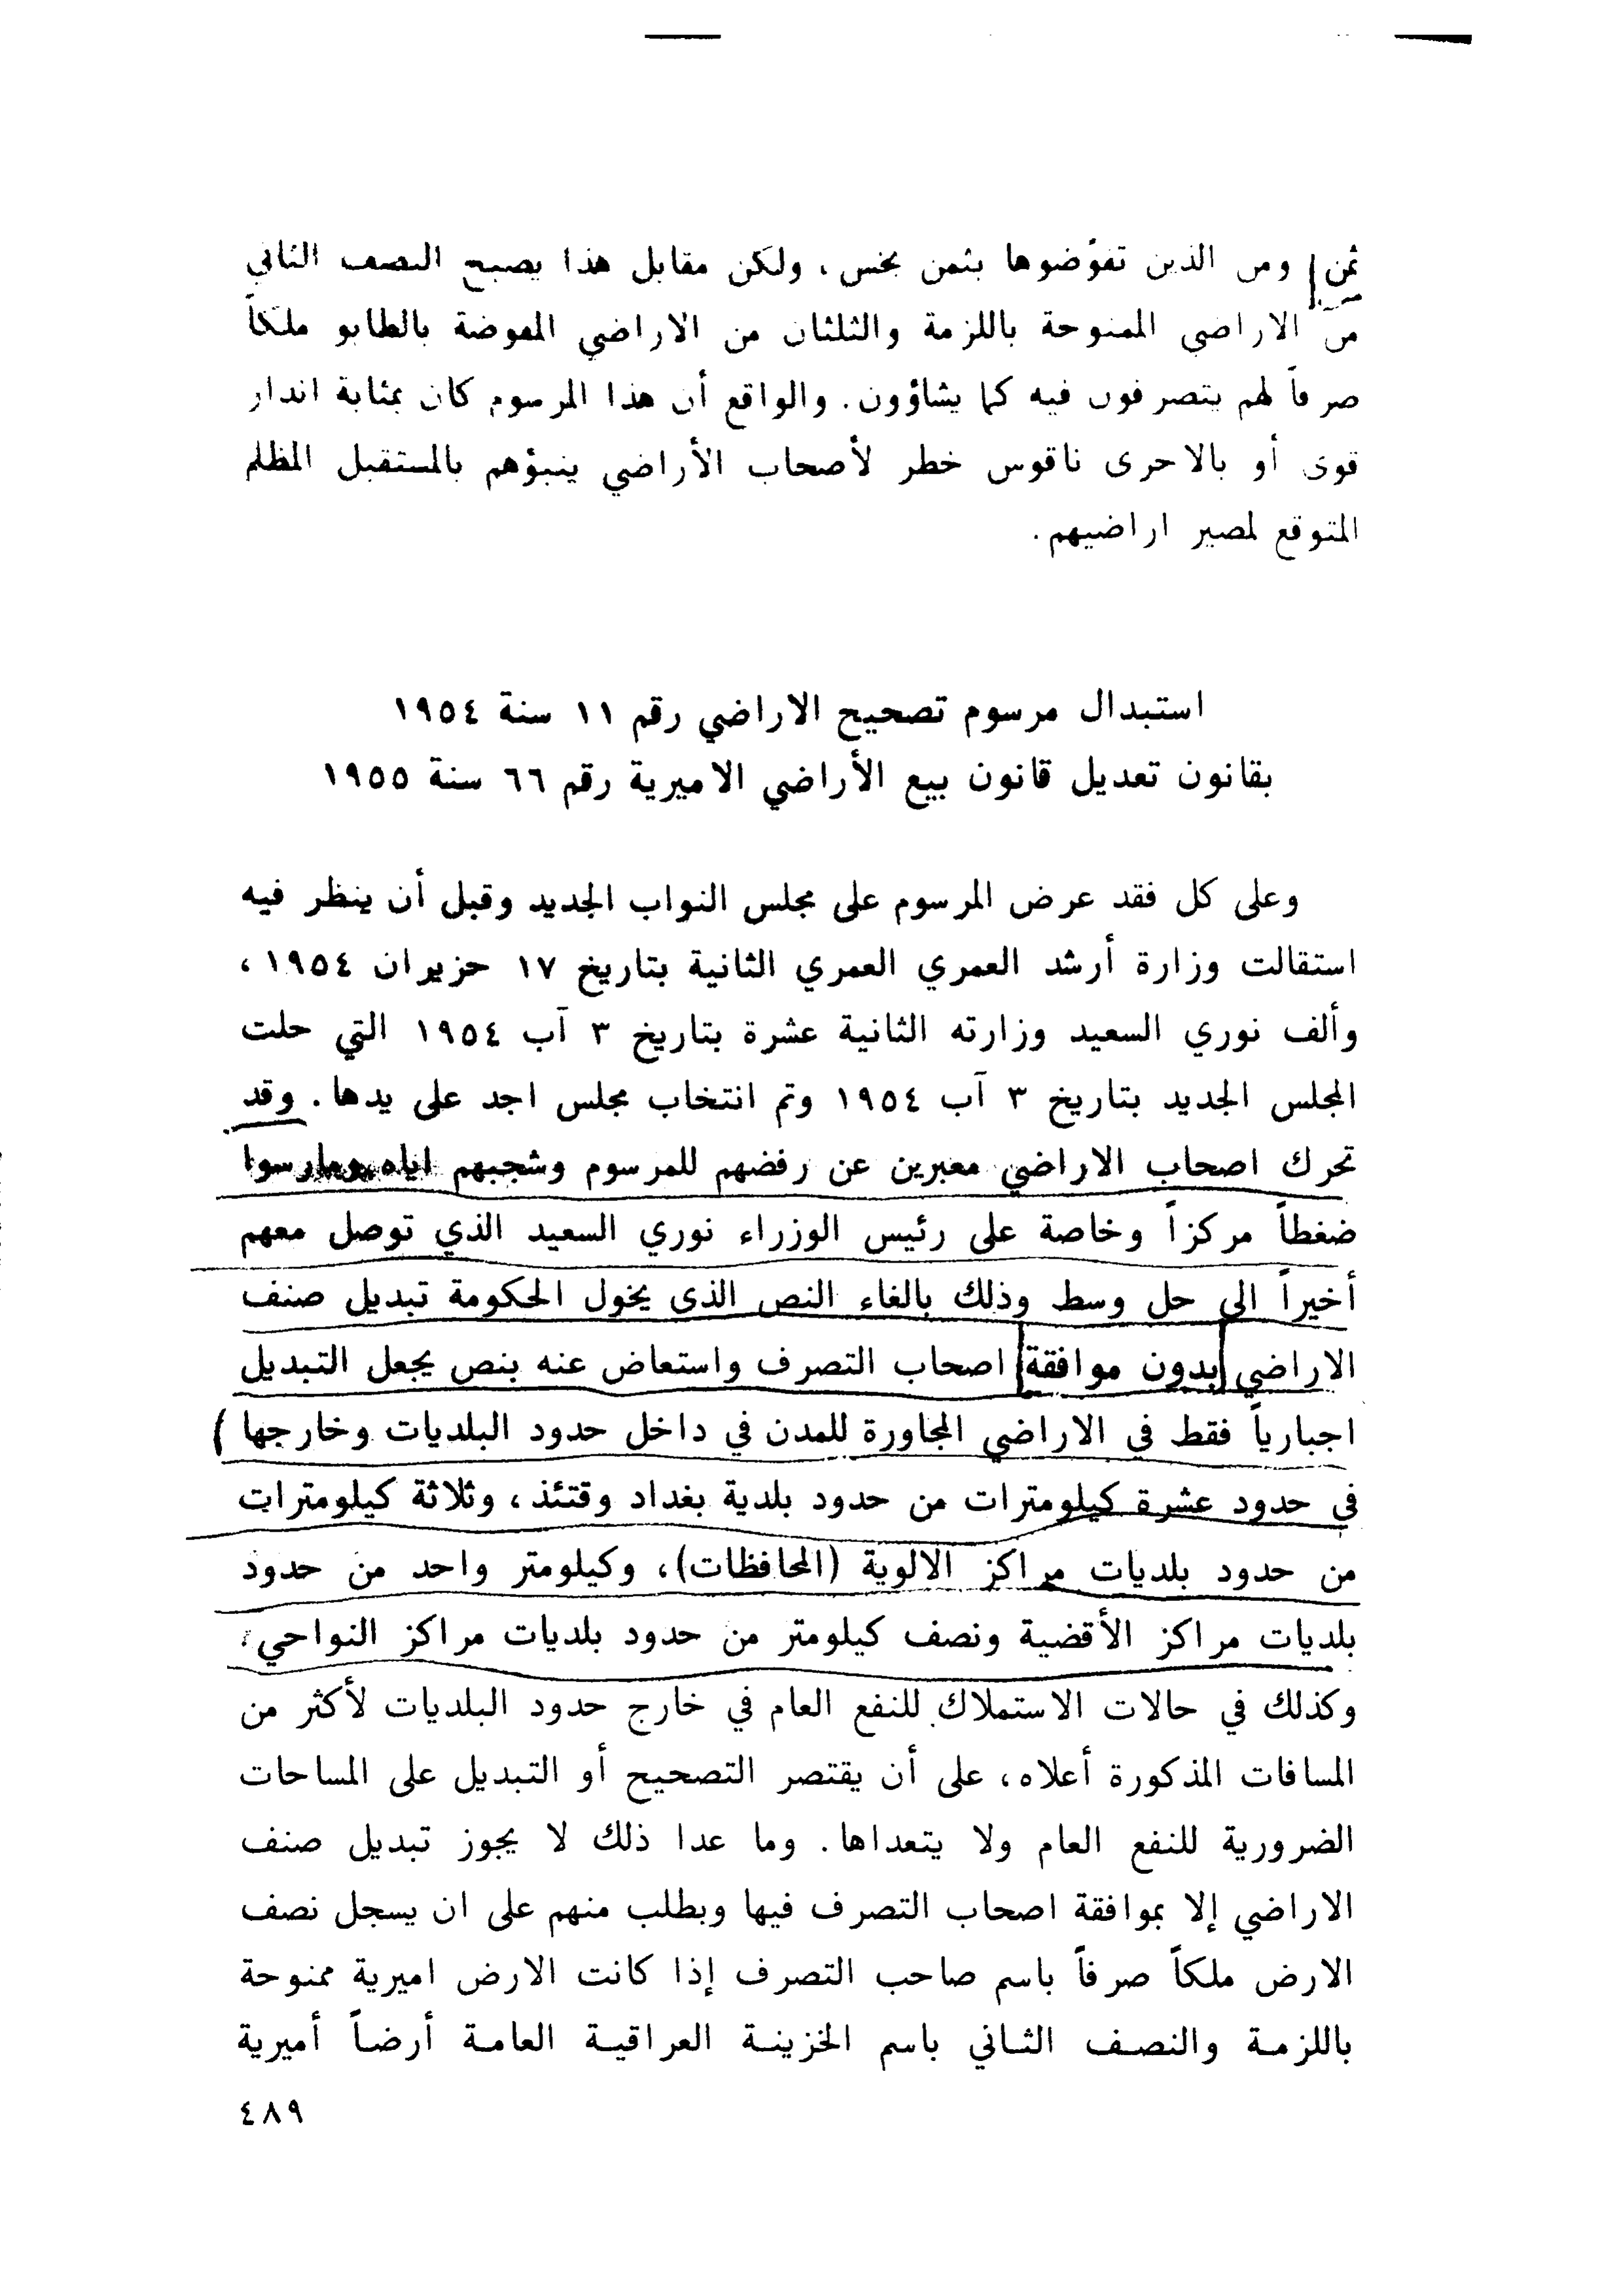 ثمن ومن الذين تفوّضوها بثمن بخس، ولكن مقابل هذا يصبح النصف الثاني
من الاراضي الممنوحة باللزمة والثلثان من الاراضي المفوضة بالطابو ملكاً
صرفاً لهم يتصرفون فيه كما يشاؤون. والواقع أن هذا المرسوم كان بمثابة انذار
قوي أو بالاحرى ناقوس خطر لأصحاب الأراضي ينبؤهم بالمستقبل المظلم
المتوقع لمصير اراضيهم.
استبدال مرسوم تصحيح الاراضي رقم ١١ سنة ١٩٥٤
بقانون تعديل قانون بيع الأراضي الاميرية رقم ٦٦ سنة ١٩٥٥
وعلى كل فقد عرض المرسوم على مجلس النواب الجديد وقبل أن ينظر فيه
استقالت وزارة أرشد العمري العمري الثانية بتاريخ ١٧ حزيران ١٩٥٤،
وألف نوري السعيد وزارته الثانية عشرة بتاريخ ٣ آب ١٩٥٤ التي حلت
المجلس الجديد بتاريخ ٣ آب ١٩٥٤ وتم انتخاب مجلس اجد على يدها. وقد
تحرك اصحاب الاراضي معبرين عن رفضهم للمرسوم وشجبهم اياه ومارسوا
ضغطاً مركزاً وخاصة على رئيس الوزراء نوري السعيد الذي توصل معهم
أخيراً الى حل وسط وذلك بالغاء النص الذي يخول الحكومة تبديل صنف
الاراضي بدون موافقة اصحاب التصرف واستعاض عنه بنص يجعل التبديل
اجبارياً فقط في الاراضي المجاورة للمدن في داخل حدود البلديات وخارجها )
في حدود عشرة كيلومترات من حدود بلدية بغداد وقتئذ، وثلاثة كيلومترات
من حدود بلديات مراكز الالوية (المحافظات)، وكيلومتر واحد من حدود
بلديات مراكز الأقضية ونصف كيلومتر من حدود بلديات مراكز النواحي،
وكذلك في حالات الاستملاك للنفع العام في خارج حدود البلديات لأكثر من
المسافات المذكورة أعلاه، على أن يقتصر التصحيح أو التبديل على المساحات
الضرورية للنفع العام ولا يتعداها. وما عدا ذلك لا يجوز تبديل صنف
الاراضي إلا بموافقة اصحاب التصرف فيها وبطلب منهم على ان يسجل نصف
الارض ملكاً صرفاً باسم صاحب التصرف إذا كانت الارض اميرية ممنوحة
باللزمة والنصف الثاني باسم الخزينة العراقية العامة أرضاً أميرية
٤٨٩